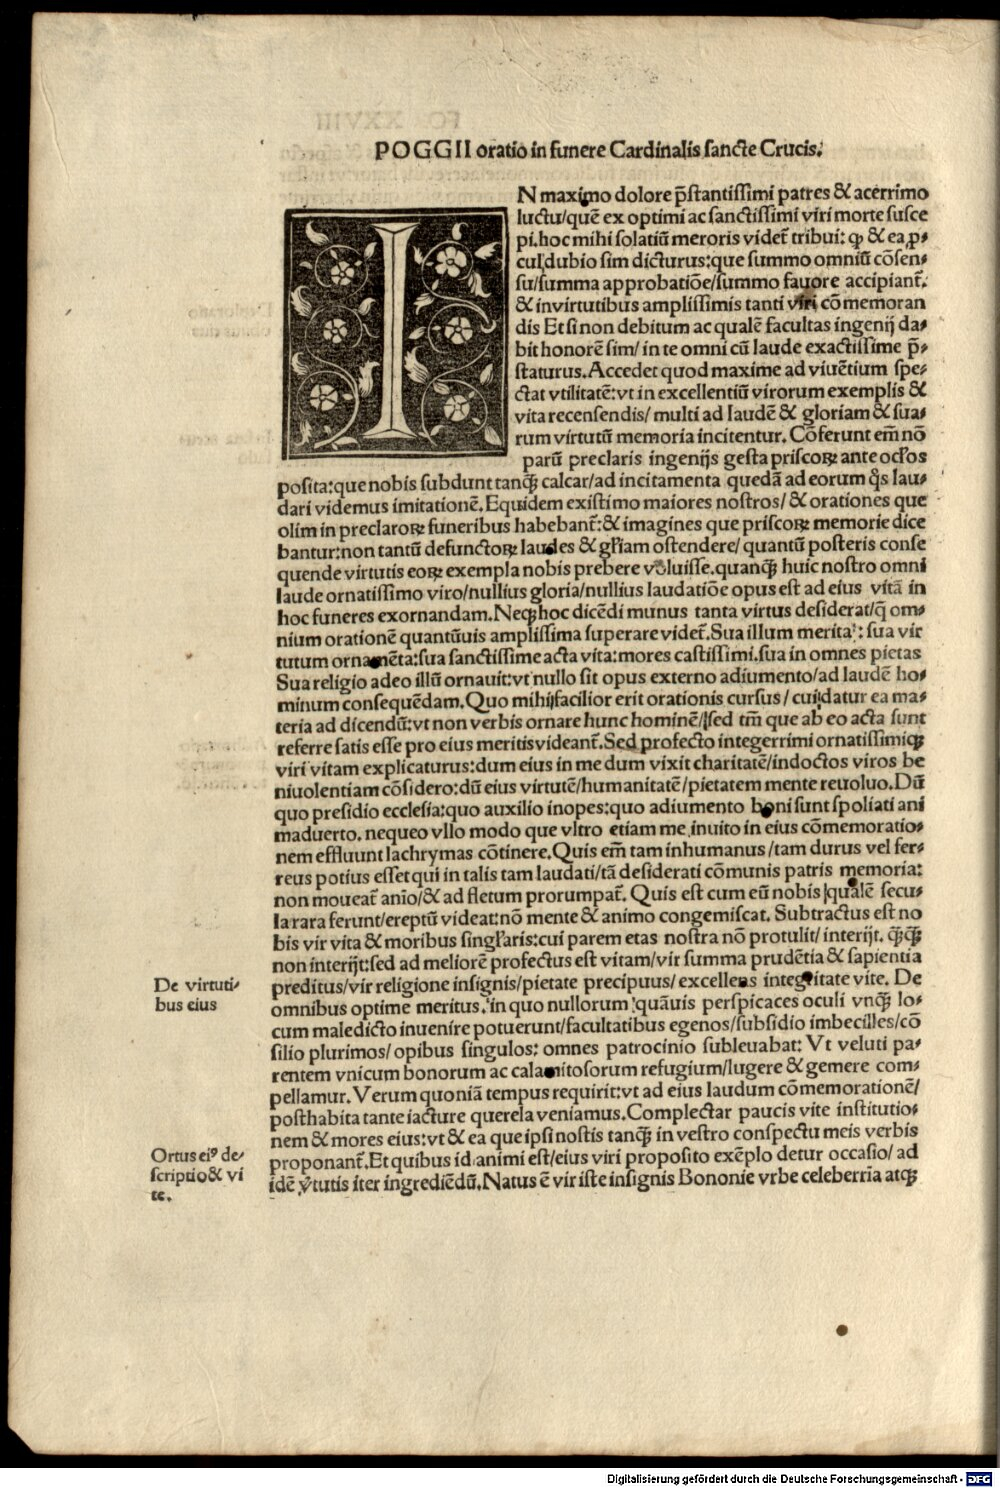 POGGII oratio in funere Cardinalis sancte Crucis.
IN maximo dolore p̄stantissimi patres & acerrimo
luctu/quē ex optimi ac sanctissimi viri morte susce
pi.hoc mihi solatiū meroris videt̄ tribui: ꝙ & ea,p⸗
cul dubio sim dicturus:que summo omniū cōsen⸗
su/summa approbatiōe/summo fauore accipiant̄.
& invirtutibus amplissimis tanti viri cōmemoran
dis Et si non debitum ac qualē facultas ingenij da⸗
bit honorē sim/ in te omni cū laude exactissime p̄⸗
staturus. Accedet quod maxime ad viuētium spe⸗
ctat vtilitatē:vt in excellentiū virorum exemplis &
vita recensendis/ multi ad laudē & gloriam & sua⸗
rum virtutū memoria incitentur. Cōferunt em̄ nō
parū preclaris ingenijs gesta priscoꝝ ante oc̄l̄os
posita:que nobis subdunt tanꝙ̄ calcar/ad incitamenta quedā ad eorum q̊s lau⸗
dari videmus imitationē. Equidem existimo maiores nostros/ & orationes que
olim in preclaroꝝ funeribus habebant̄:& imagines que priscoꝝ memorie dice
bantur:non tantū defunctoꝝ laudes & gl̄iam ostendere/ quantū posteris conse
quende virtutis eoꝝ exempla nobis prebere voluisse.quanꝙ̄ huic nostro omni
laude ornatissimo viro/nullius gloria/nullius laudatiōe opus est ad eius vitā in
hoc funeres exornandam. Neqꝫ hoc dicēdi munus tanta virtus desiderat/q̄ om⸗
nium orationē quantūuis amplissima superare videt̄. Sua illum merita: sua vir
tutum ornamēta:sua sanctissime acta vita:mores castissimi.sua in omnes pietas
Sua religio adeo illū ornauit:vt nullo sit opus externo adiumento/ad laudē ho⸗
minum consequēdam. Quo mihi facilior erit orationis cursus/ cui datur ea ma⸗
teria ad dicendū:vt non verbis ornare hunc hominē/sed tm̄ que ab eo acta sunt
referre satis esse pro eius meritis videant̄. Sed profecto integerrimi ornatissimiqꝫ
viri vitam explicaturus:dum eius in me dum vixit charitatē/indoctos viros be
niuolentiam cōsidero:dū eius virtutē/humanitatē/pietatem mente reuoluo. Dū
quo presidio ecclesia:quo auxilio inopes:quo adiumento boni sunt spoliati ani
maduerto. nequeo vllo modo que vltro etiam me inuito in eius cōmemoratio⸗
nem effluunt lachrymas cōtinere. Quis em̄ tam inhumanus/tam durus vel fer⸗
reus potius esset qui in talis tam laudati/tā desiderati cōmunis patris memoria:
non moueat̄ anio/& ad fletum prorumpat̄. Quis est cum eū nobis qualē secu⸗
la rara ferunt/ereptū videat:nō mente & animo congemiscat. Subtractus est no
bis vir vita & moribus singl̄aris:cui parem etas nostra nō protulit/ interijt. ꝙ̄ꝙ̄
non interijt:sed ad meliorē profectus est vitam/vir summa prudētia & sapientia
preditus/vir religione insignis/pietate precipuus/ excellens integritate vite. De
omnibus optime meritus. in quo nullorum quāuis perspicaces oculi vnꝙ̄ lo⸗
cum maledicto inuenire potuerunt/facultatibus egenos/subsidio imbecilles/cō
silio plurimos/ opibus singulos: omnes patrocinio subleuabat: Vt veluti pa⸗
rentem vnicum bonorum ac calamitosorum refugium/lugere & gemere com⸗
pellamur. Verum quoniā tempus requirit:vt ad eius laudum cōmemorationē/
posthabita tante iacture querela veniamus. Complectar paucis vite institutio⸗
nem & mores eius:vt & ea que ipsi nostis tanꝙ̄ in vestro conspectu meis verbis
proponant̄. Et quibus id animi est/eius viri proposito exēplo detur occasio/ ad
idē v̄tutis iter ingrediēdū. Natus ē vir iste insignis Bononie vrbe celeberria atqꝫ
De virtuti⸗
bus eius
Ortus eiꝰ de⸗
scriptio & vi
te.
Digitalisierung gefördert durch die Deutsche Forschungsgemeinschaft - DFG